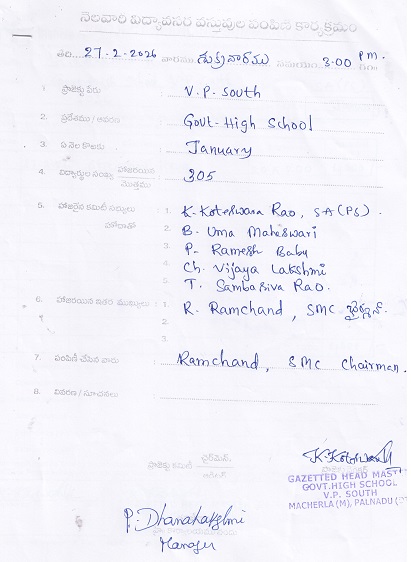 నెలవారి విద్యావసర వస్తువుల పంపిణి కార్యక్రమం
తేది. 27-2-2026 వారము శుక్రవారము సమయం. 3.00 P.m. గం॥
1. ప్రాజెక్టు పేరు : V.P. South
2. ప్రదేశము / ఆవరణ : Govt. High School
3. ఏ నెల కొరకు : January
4. విద్యార్థుల సంఖ్య హాజరయిన / మొత్తము : 305
5. హాజరైన కమిటి సభ్యులు : 1. K. Koteswara Rao, SA (PS).
హోదాతో 2. B. Uma Maheswari
3. P. Ramesh Babu
4. Ch. Vijaya Lakshmi
5. T. Sambasiva Rao.
6. హాజరయిన ఇతర ముఖ్యులు : 1. R. Ramchand, SMC ఛైర్మన్.
2.
3.
7. పంపిణి చేసిన వారు : Ramchand, SMC Chairman.
8. వివరణ / సూచనలు :
ప్రాజెక్టు కమిటి ఛైర్మెన్,
K. Koteswara
GAZETTED HEAD MAST
GOVT.HIGH SCHOOL
V.P. SOUTH
MACHERLA (M), PALNADU (D
P. Dhanalakshmi
Manager